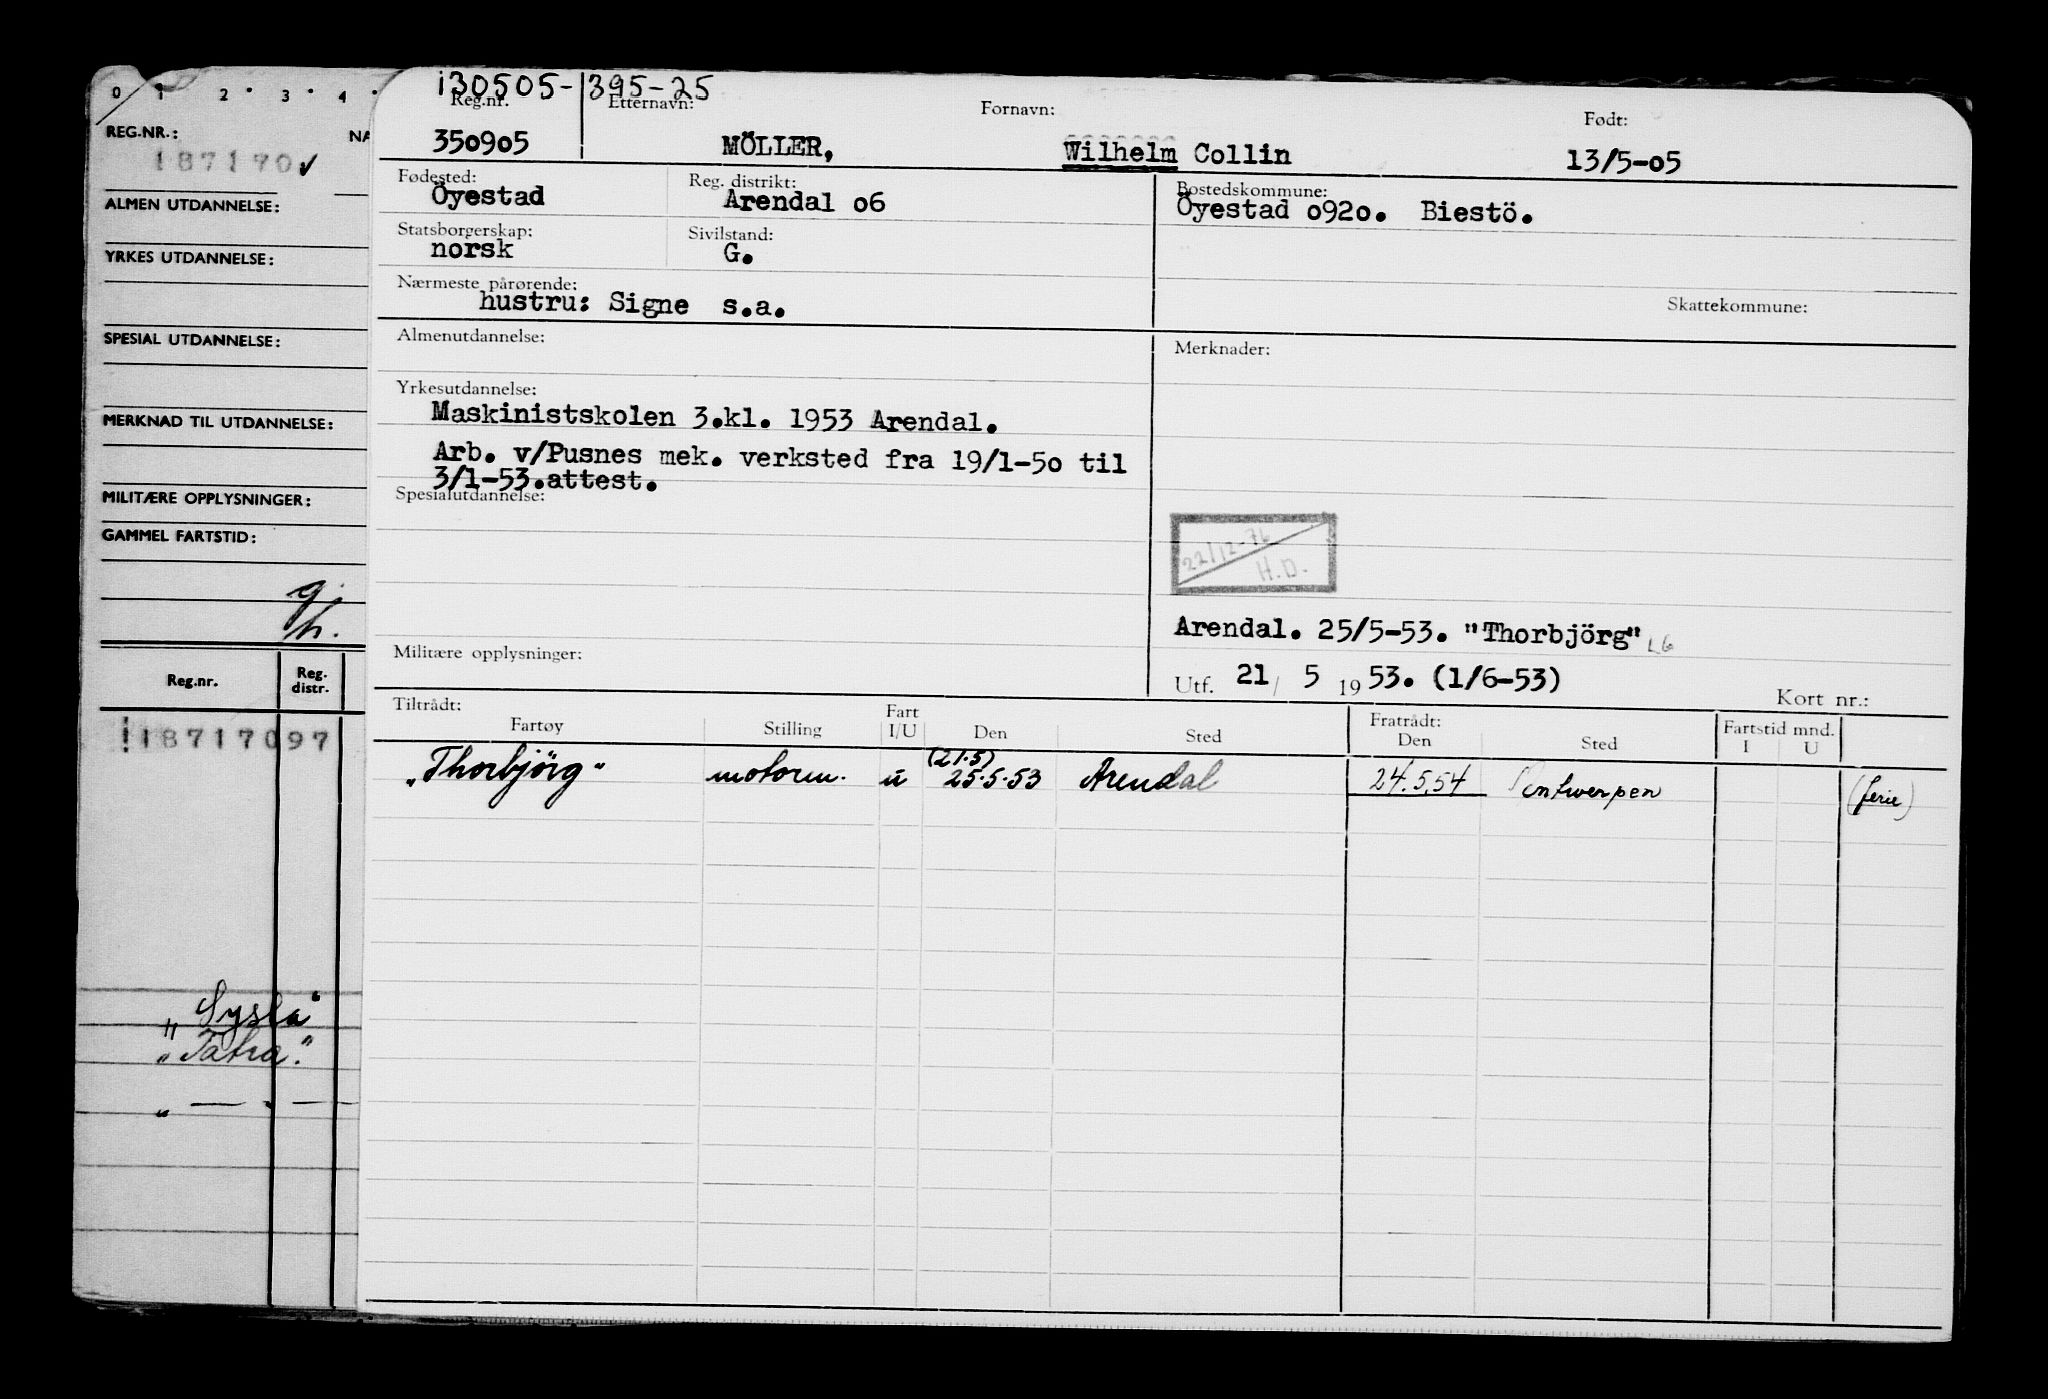 0 1 2 3 4
REG.NR.:
187170 ✓
ALMEN UTDANNELSE:
YRKES UTDANNELSE:
SPESIAL UTDANNELSE:
MERKNAD TIL UTDANNELSE:
MILITÆRE OPPLYSNINGER:
GAMMEL FARTSTID:
Reg.nr. Reg. distr.
18717097
„Sysla"
„Tatra."
„ — " —
130505-395-25
Reg.nr. Etternavn: Fornavn: Født:
350905 MÖLLER, Wilhelm Collin 13/5-05
Fødested: Reg. distrikt: Bostedskommune:
Öyestad Arendal o6 Öyestad o92o. Biestö.
Statsborgerskap: Sivilstand:
norsk G.
Nærmeste pårørende:
hustru: Signe s.a.
Skattekommune:
Almenutdannelse: Merknader:
Yrkesutdannelse:
Maskinistskolen 3.kl. 1953 Arendal.
Arb. v/Pusnes mek. verksted fra 19/1-5o til
3/1-53.attest.
Spesialutdannelse:
22/12-76
H.D.
Arendal. 25/5-53. "Thorbjörg"
Militære opplysninger:
Utf. 21/ 5 1953. (1/6-53)
Kort nr.:
Tiltrådt: Fratrådt:
Fartøy Stilling Fart I/U Den Sted Den Sted Fartstid mnd. I U
(21.5)
„Thorbjörg" motorm. u 25.5.53 Arendal 24.5.54 Antwerpen (ferie)